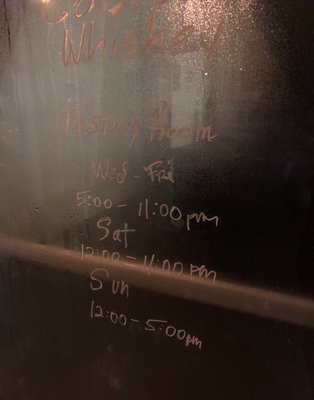 Whiskey
Tasting Room
Wed - Fri
5:00 - 11:00 pm
Sat
12:00 - 11:00 pm
Sun
12:00 - 5:00pm